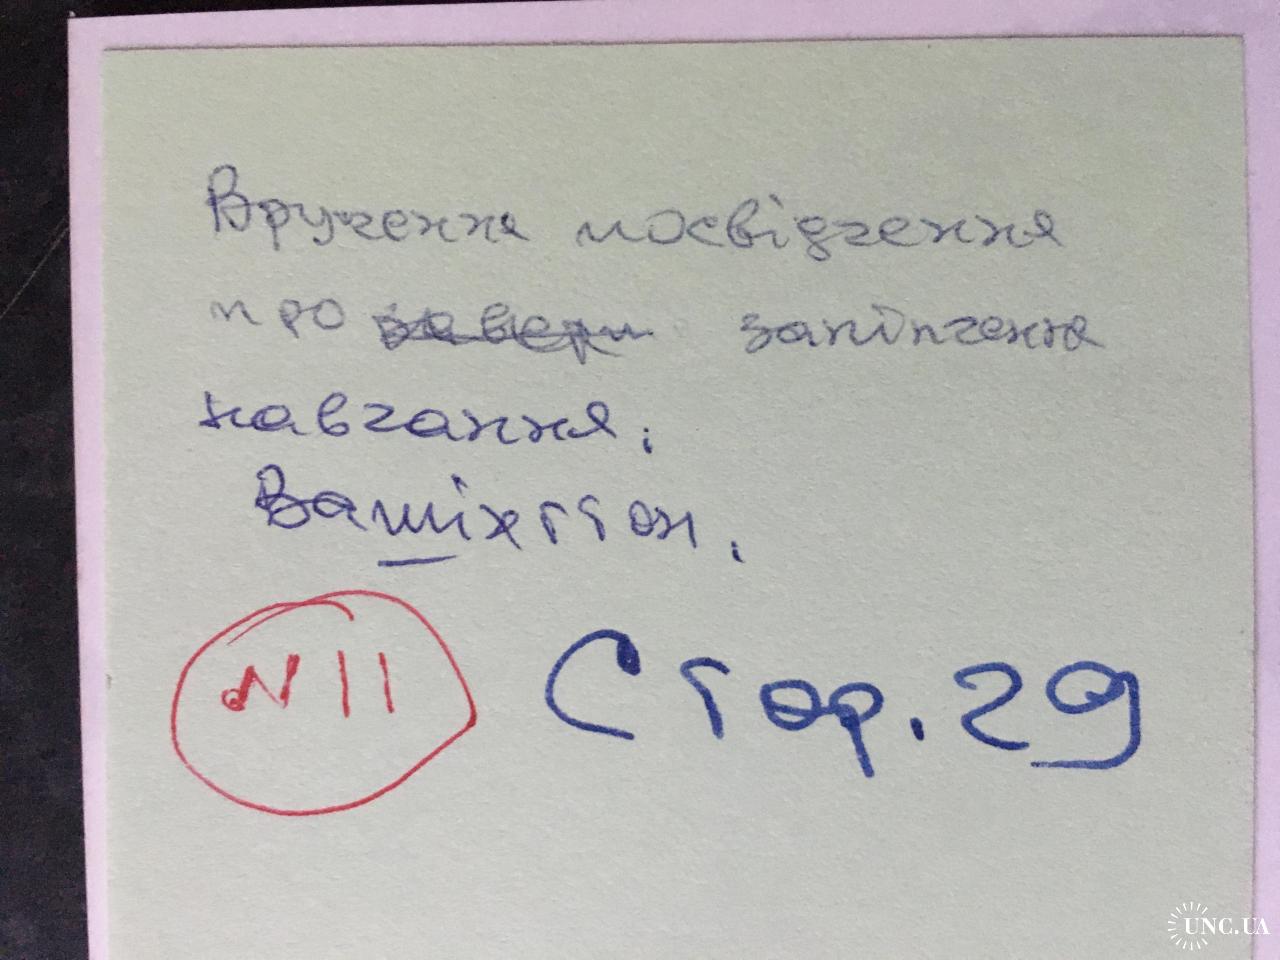 Вручення посвідчення
про завер закінчення
навчання.
Вашінгтон.
N 11 Стор. 29
UNC.UA